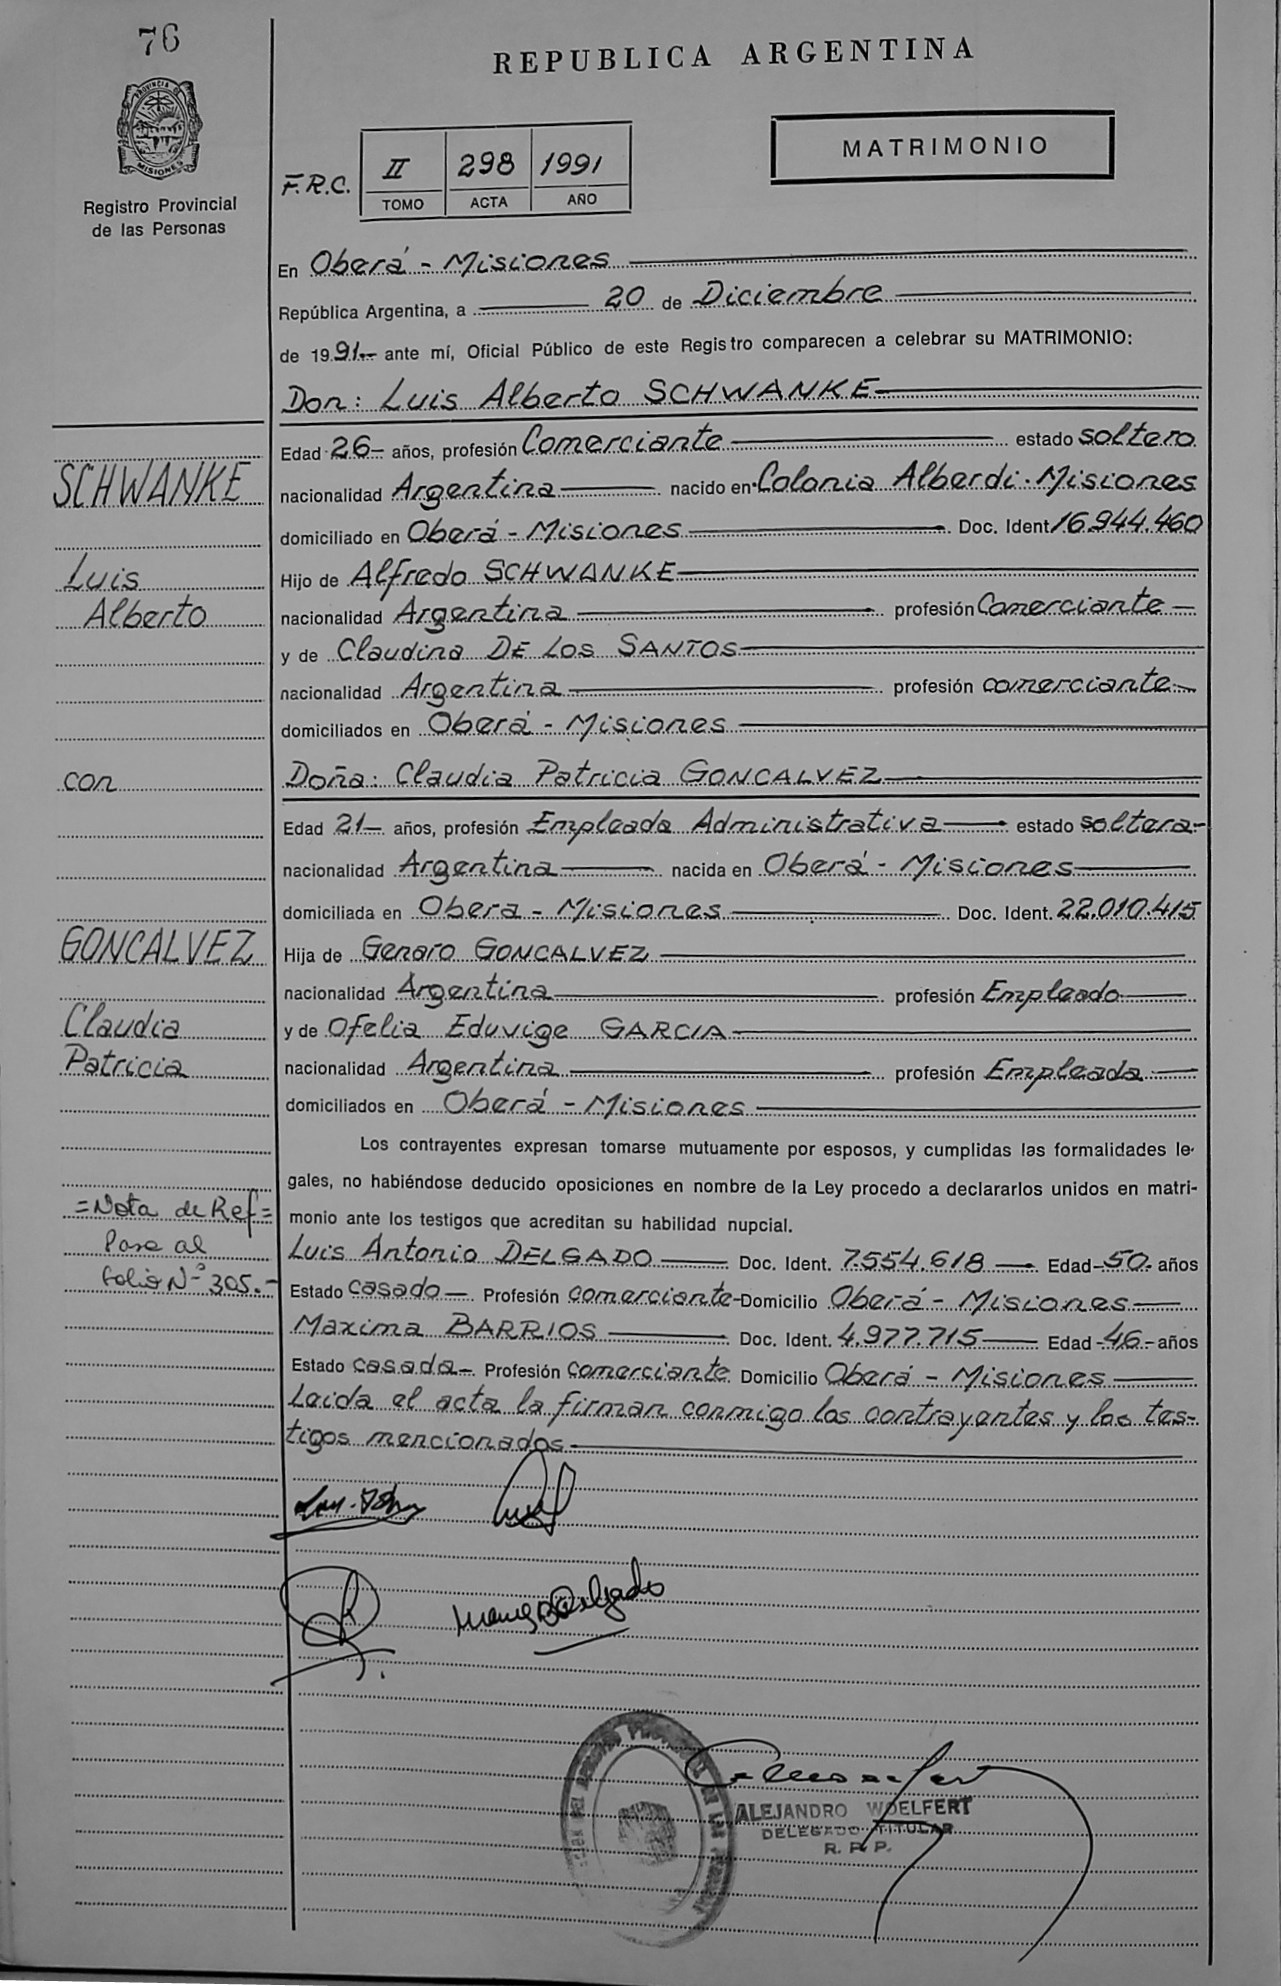 76
REPUBLICA ARGENTINA
PROVINCIA DE
MISIONES
Registro Provincial
de las Personas
MATRIMONIO
F.R.C.
II 298 1991
TOMO ACTA AÑO
En Oberá - Misiones
República Argentina, a 20 de Diciembre
de 1991 ante mí, Oficial Público de este Registro comparecen a celebrar su MATRIMONIO:
Don: Luis Alberto SCHWANKE
Edad 26 años, profesión Comerciante estado soltero
SCHWANKE
nacionalidad Argentina nacido en Colonia Alberdi - Misiones
domiciliado en Oberá - Misiones Doc. Ident 16.944.460
Luis
Hijo de Alfredo SCHWANKE
Alberto
nacionalidad Argentina profesión Comerciante
y de Claudina DE LOS SANTOS
nacionalidad Argentina profesión comerciante
domiciliados en Oberá - Misiones
con
Doña: Claudia Patricia GONCALVEZ
Edad 21 años, profesión Empleada Administrativa estado soltera
nacionalidad Argentina nacida en Oberá - Misiones
domiciliada en Obera - Misiones Doc. Ident. 22.010.415
GONCALVEZ
Hija de Genaro GONCALVEZ
nacionalidad Argentina profesión Empleado
Claudia
y de Ofelia Eduvige GARCIA
Patricia
nacionalidad Argentina profesión Empleada
domiciliados en Oberá - Misiones
Los contrayentes expresan tomarse mutuamente por esposos, y cumplidas las formalidades le-
gales, no habiéndose deducido oposiciones en nombre de la Ley procedo a declararlos unidos en matri-
monio ante los testigos que acreditan su habilidad nupcial.
=Nota de Ref=
Pase al
folio Nº 305.-
Luis Antonio DELGADO Doc. Ident. 7.554.618 Edad 50 años
Estado casado Profesión comerciante Domicilio Oberá - Misiones
Maxima BARRIOS Doc. Ident. 4.977.715 Edad 46 años
Estado casada Profesión comerciante Domicilio Oberá - Misiones
Leida el acta la firman conmigo los contrayentes y los tes-
tigos mencionados
ALEJANDRO WOELFERT
DELEGADO TITULAR
R. P. P.